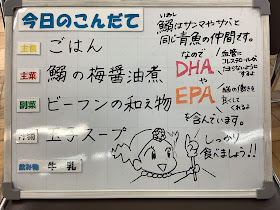 今日のこんだて
主食 ごはん
主菜 鰯の梅醤油煮
副菜 ビーフンの和え物
汁物 玉子スープ
飲み物 牛乳
いわし
鰯はサンマやサバと
同じ青魚の仲間です。
なので
DHA
血管に
コレステロールが
たまらないようにするよ
や
EPA
脳の働きを
良くして
くれるよ
を含んでいます。
しっかり
食べましょう!!